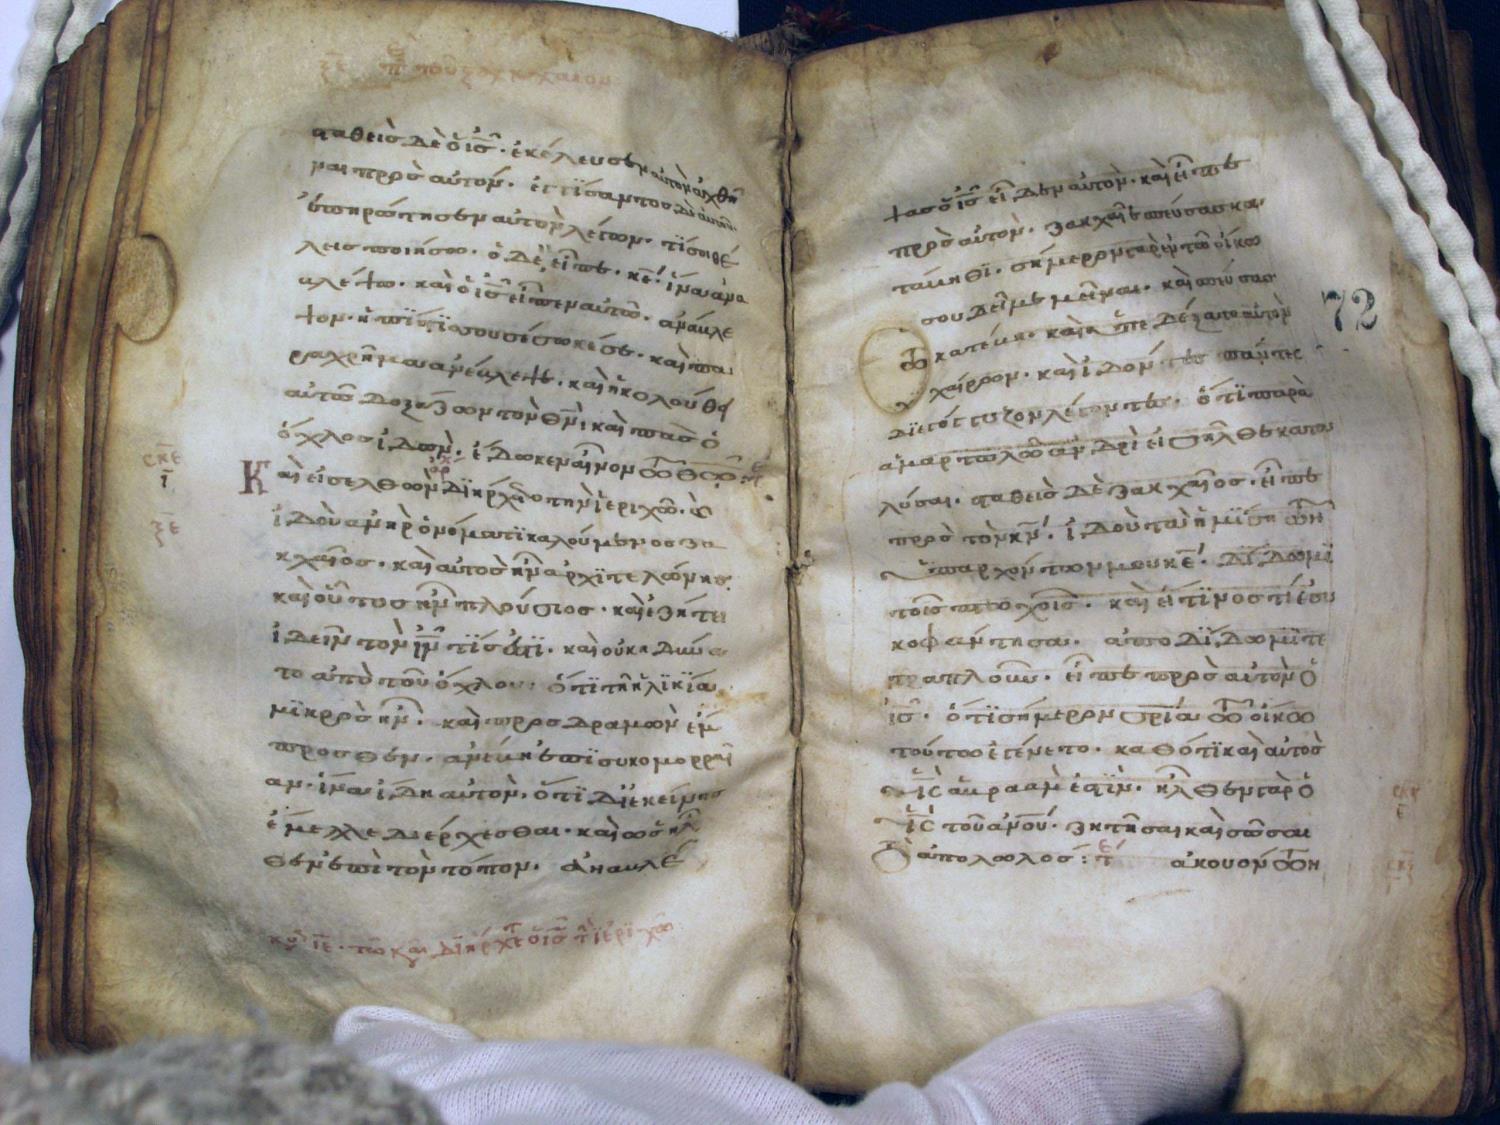 ξε π του ζακχαιου
σταθεὶς δὲ ὁ ις̅. ἐκέλευσεν αὐτὸν ἀχθῆ
ναι πρὸς αὐτόν. ἐγγίσαντος δὲ αὐτοῦ
ἐπηρώτησεν αὐτὸν λέγων. τί σοι θέ
λεις ποιήσω. ὁ δὲ εἶπε. κε̅. ἵνα ἀνα
βλέψω. καὶ ὁ ις̅ εἶπεν αὐτῶ. ἀνάβλε
ψον. ἡ πίστις σου σέσωκέ σε. καὶ πα
ραχρῆμα ἀνέβλεψε. καὶ ἠκολούθει
αὐτῶ δοξάζων τὸν θν̅. καὶ πᾶς ὁ
ὄχλος ἰδὼν. ἔδωκεν αἶνον τῶ θῶ:
Καὶ εἰσελθὼν διήρχετο τὴν ἱεριχώ. &
ἰδοὺ ἀνὴρ ὀνόματι καλούμενος ζα
κχαῖος. καὶ αὐτὸς ἦν ἀρχιτελώνης.
καὶ οὗτος ἦν πλούσιος. καὶ ἐζήτει
ἰδεῖν τὸν ιν̅ τίς ἐστι. καὶ οὐκ ἠδύνα
το ἀπὸ τοῦ ὄχλου. ὅτι τῆ ἡλικία
μικρὸς ἦν. καὶ προσδραμὼν ἔμ
προσθεν. ἀνέβη ἐπὶ συκομορραί
αν. ἵνα ἴδη αὐτόν. ὅτι δι ἐκείνης
ἔμελλε διέρχεσθαι. καὶ ὡς ἦλ
θεν ἐπὶ τὸν τόπον. ἀναβλέ
τῶ και διήρχετο ὁ ις̅ τ ἱεριχω
ψας ὁ ις̅ εἶδεν αὐτὸν. καὶ εἶπε
πρὸς αὐτόν. ζακχαῖε σπεύσας κα
τάβηθι. σήμερον γὰρ ἐν τῶ οἴκω
σου δεῖ με μεῖναι. καὶ σπεύσας
κατέβη. καὶ ὑπεδέξατο αὐτὸν
χαίρων. καὶ ἰδόντες πάντες
διεγόγγυζον λέγοντες. ὅτι παρὰ
ἁμαρτωλῶ ἀνδρὶ εἰσῆλθε κατα
λῦσαι. σταθεὶς δὲ ζακχαῖος. εἶπε
πρὸς τὸν κν̅. ἰδοὺ τὰ ἡμίση τῶν
ὑπαρχόντων μου κε̅. δίδωμι
τοῖς πτωχοῖς. καὶ εἴ τινός τι ἐσυ
κοφάντησα. ἀποδίδωμι τε
τραπλοῦν. εἶπε πρὸς αὐτὸν ὁ
ις̅. ὅτι σήμερον σρία τῶ οἴκω
τούτω ἐγένετο. καθότι καὶ αὐτὸς
υς̅ ἀβραάμ ἐστιν. ἦλθεν γὰρ ὁ
υς̅ τοῦ ανου. ζητῆσαι καὶ σῶσαι
τὸ ἀπολωλός: ἀκουόντων
72
σκε
ι
ξε